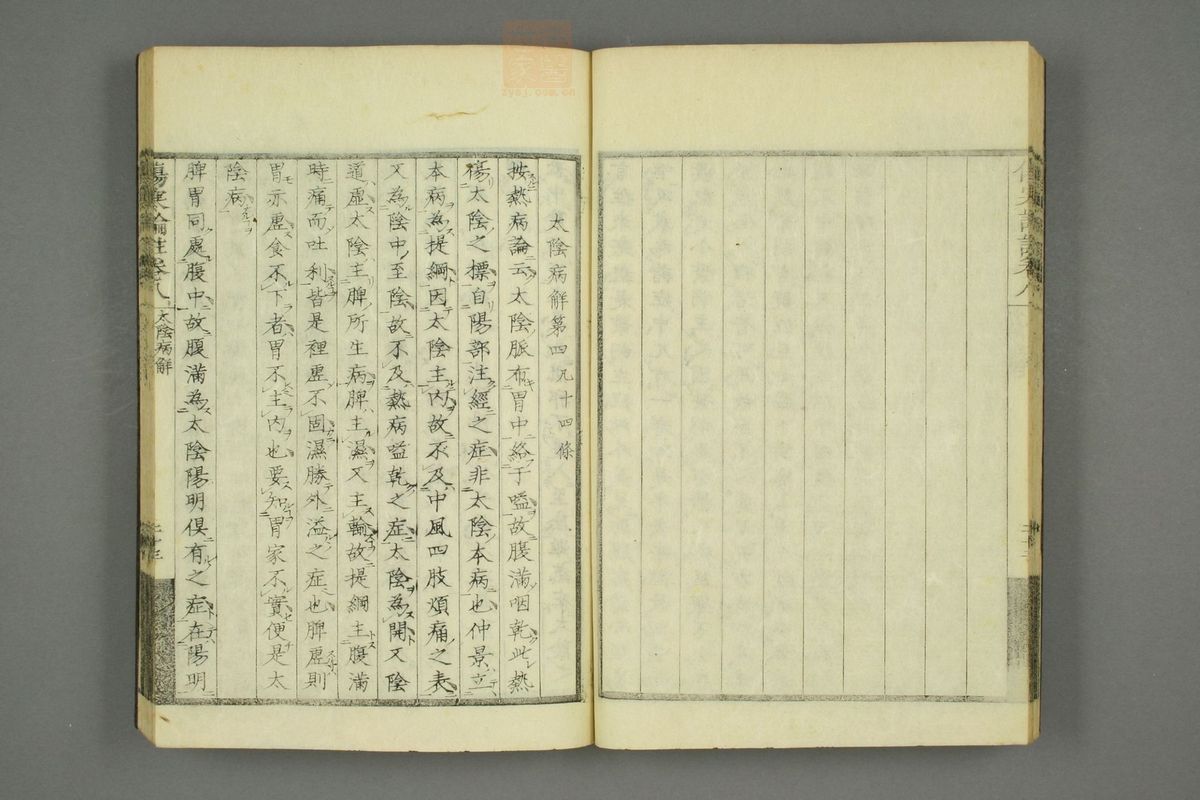 太陰病解第四 凡十四條
按熱病論云太陰脈布胃中絡于嗌故腹滿咽乾此熱
傷太陰之標自陽部注經之症非太陰本病也仲景立
本病為提綱因太陰主內故不及中風四肢煩痛之表
又為陰中至陰故不及熱病嗌乾之症太陰為開又陰
道虛太陰主脾所生病脾主濕又主輸故提綱主腹滿
時痛而吐利皆是裡虛不固濕勝外溢之症也脾虛則
胃亦虛食不下者胃不主內也要知胃家不實便是太
陰病
脾胃同處腹中故腹滿為太陰陽明俱有之症在陽明
傷寒論註卷八
太陰病解
二十三
zysj.com.cn